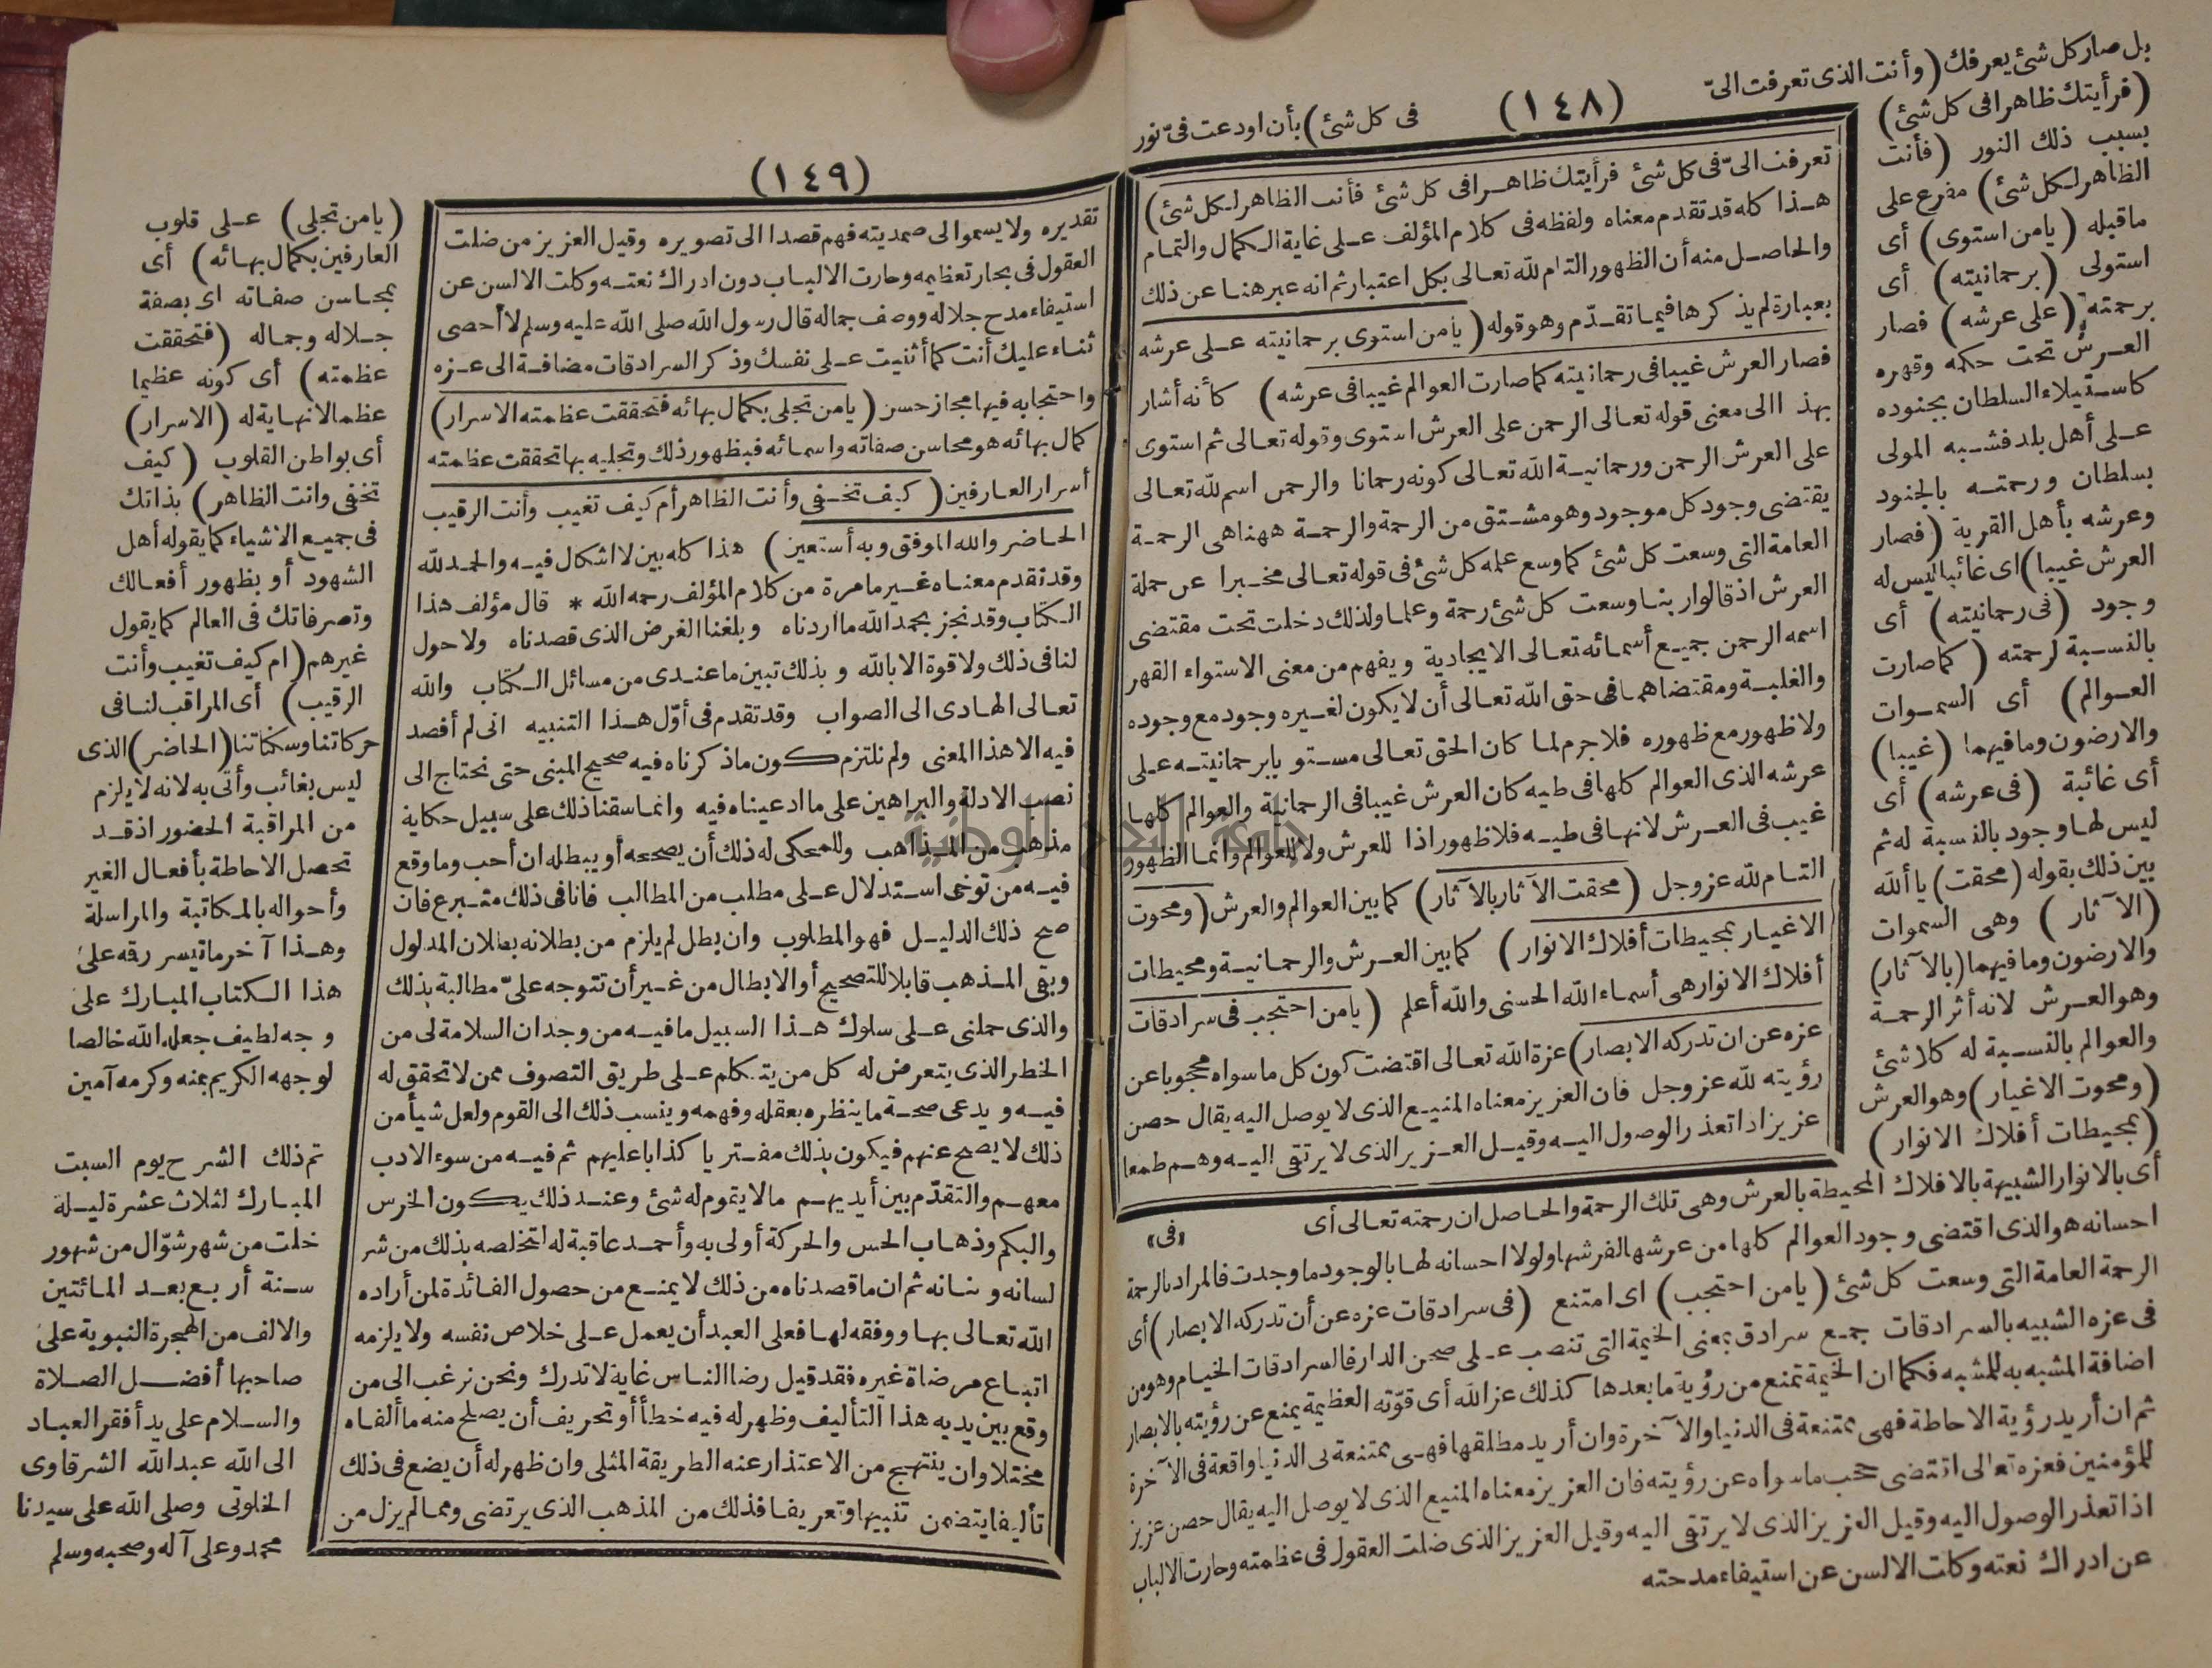 بل صار كل شئ يعرفك (وأنت الذى تعرفت الىّ
(١٤٨)
فى كل شئ) بأن اودعت فىّ نور
(فرأيتك ظاهرا فى كل شئ)
بسبب ذلك النور (فأنت
الظاهر لكل شئ) مفرع على
ماقبله (يامن استوى) أى
استولى (برحمانيته) أى
برحمته (على عرشه) فصار
العرش تحت حكمه وقهره
كاستيلاء السلطان بجنوده
على أهل بلد فشبه المولى
بسلطان ورحمته بالجنود
وعرشه بأهل القرية (فصار
العرش غيبا) اى غائبا ليس له
وجود (فى رحمانيته) أى
بالنسبة لرحمته (كما صارت
العوالم) أى السموات
والارضون ومافيهما (غيبا)
أى غائبة (فى عرشه) أى
ليس لها وجود بالنسبة له ثم
بين ذلك بقوله (محقت) يا ألله
(الآثار) وهى السموات
والارضون ومافيهما (بالآثار)
وهو العرش لانه أثر الرحمة
والعوالم بالنسبة له كلا شئ
(ومحوت الاغيار) وهو العرش
(بمحيطات أفلاك الانوار)
تعرفت الىّ فى كل شئ فرأيتك ظاهرا فى كل شئ فأنت الظاهر لكل شئ)
هذا كله قد تقدم معناه ولفظه فى كلام المؤلف على غاية الكمال والتمام
والحاصل منه أن الظهور التام لله تعالى بكل اعتبار ثم انه عبر هنا عن ذلك
بعبارة لم يذكرها فيما تقدّم وهو قوله (يامن استوى برحمانيته على عرشه
فصار العرش غيبا فى رحمانيته كما صارت العوالم غيبا فى عرشه) كأنه أشار
بهذا الى معنى قوله تعالى الرحمن على العرش استوى وقوله تعالى ثم استوى
على العرش الرحمن ورحمانية الله تعالى كونه رحمانا والرحمن اسم لله تعالى
يقتضى وجود كل موجود وهو مشتق من الرحمة والرحمة ههنا هى الرحمة
العامة التى وسعت كل شئ كما وسع علمه كل شئ فى قوله تعالى مخبرا عن حملة
العرش اذ قالوا ربنا وسعت كل شئ رحمة وعلما ولذلك دخلت تحت مقتضى
اسمه الرحمن جميع أسمائه تعالى الايجادية ويفهم من معنى الاستواء القهر
والغلبة ومقتضاهما فى حق الله تعالى أن لا يكون لغيره وجود مع وجوده
ولا ظهور مع ظهوره فلا جرم لما كان الحق تعالى مستويا برحمانيته على
عرشه الذى العوالم كلها فى طيه كان العرش غيبا فى الرحمانية والعوالم كلها
غيب فى العرش لانها فى طيه فلا ظهور اذا للعرش ولا للعوالم وانما الظهور
التام لله عز وجل (محقت الآثار بالآثار) كما بين العوالم والعرش (ومحوت
الاغيار بمحيطات أفلاك الانوار) كما بين العرش والرحمانية ومحيطات
أفلاك الانوار هى أسماء الله الحسنى والله أعلم (يامن احتجب فى سرادقات
عزه عن ان تدركه الابصار) عزة الله تعالى اقتضت كون كل ماسواه محجوبا عن
رؤيته لله عز وجل فان العزيز معناه المنيع الذى لا يوصل اليه يقال حصن
عزيز اذا تعذر الوصول اليه وقيل العزيز الذى لا يرتقى اليه وهم طمعا
أى بالانوار الشبيهة بالافلاك المحيطة بالعرش وهى تلك الرحمة والحاصل ان رحمته تعالى أى
«فى»
احسانه هو الذى اقتضى وجود العوالم كلها من عرشها لفرشها ولولا احسانه لها بالوجود ما وجدت فالمراد بالرحمة
الرحمة العامة التى وسعت كل شئ (يامن احتجب) اى امتنع (فى سرادقات عزه عن أن تدركه الابصار) أى
فى عزه الشبيه بالسرادقات جمع سرادق بمعنى الخيمة التى تنصب على صحن الدار فالسرادقات الخيام وهو من
اضافة المشبه به للمشبه فكما ان الخيمة تمنع من رؤية مابعدها كذلك عز الله أى قوّته العظيمة يمنع عن رؤيته بالابصار
ثم ان أريد رؤية الاحاطة فهى ممتنعة فى الدنيا والآخرة وان أريد مطلقها فهى ممتنعة فى الدنيا واقعة فى الآخرة
للمؤمنين فعزه تعالى اقتضى حجب ماسواه عن رؤيته فان العزيز معناه المنيع الذى لا يوصل اليه يقال حصن عزيز
اذا تعذر الوصول اليه وقيل العزيز الذى لا يرتقى اليه وقيل العزيز الذى ضلت العقول فى عظمته وحارت الالباب
عن ادراك نعته وكلت الالسن عن استيفاء مدحته
(١٤٩)
تقديره ولا يسمو الى صمديته فهم قصدا الى تصويره وقيل العزيز من ضلت
العقول فى بحار تعظيمه وحارت الالباب دون ادراك نعته وكلت الالسن عن
استيفاء مدح جلاله ووصف جماله قال رسول الله صلى الله عليه وسلم لا أحصى
ثناء عليك أنت كما أثنيت على نفسك وذكر السرادقات مضافة الى عزه
واحتجابه فيها مجاز حسن (يامن تجلى بكمال بهائه فتحققت عظمته الاسرار)
كمال بهائه هو محاسن صفاته واسمائه فبظهور ذلك وتجليه بها تحققت عظمته
أسرار العارفين (كيف تخفى وأنت الظاهر أم كيف تغيب وأنت الرقيب
الحاضر والله الموفق وبه أستعين) هذا كله بين لا اشكال فيه والحمد لله
وقد تقدم معناه غير ما مرة من كلام المؤلف رحمه الله * قال مؤلف هذا
الكتاب وقد نجز بحمد الله ما اردناه وبلغنا الغرض الذى قصدناه ولا حول
لنا فى ذلك ولا قوة الا بالله وبذلك تبين ما عندى من مسائل الكتاب والله
تعالى الهادى الى الصواب وقد تقدم فى أوّل هذا التنبيه انى لم أقصد
فيه الا هذا المعنى ولم نلتزم كون ما ذكرناه فيه صحيح المبنى حتى نحتاج الى
نصب الادلة والبراهين على ما ادعيناه فيه وانما سقنا ذلك على سبيل حكاية
مذهب من المذاهب وللمحكى له ذلك أن يصححه أو يبطله ان أحب وما وقع
فيه من توخى استدلال على مطلب من المطالب فانا فى ذلك متبرع فان
صح ذلك الدليل فهو المطلوب وان بطل لم يلزم من بطلانه بطلان المدلول
وبقى المذهب قابلا للتصحيح أو الابطال من غير أن تتوجه علىّ مطالبة بذلك
والذى حملنى على سلوك هذا السبيل ما فيه من وجدان السلامة لى من
الخطر الذى يتعرض له كل من يتكلم على طريق التصوف ممن لا تحقق له
فيه ويدعى صحة ما ينظره بعقله وفهمه وينسب ذلك الى القوم ولعل شيأ من
ذلك لا يصح عنهم فيكون بذلك مفتريا كذابا عليهم ثم فيه من سوء الادب
معهم والتقدّم بين أيديهم ما لا يقوم له شئ وعند ذلك يكون الخرس
والبكم وذهاب الحس والحركة أولى به وأحمد عاقبة له اتخلصه بذلك من شر
لسانه وبنانه ثم ان ما قصدناه من ذلك لا يمنع من حصول الفائدة لمن أراده
الله تعالى بها ووفقه لها فعلى العبد أن يعمل على خلاص نفسه ولا يلزمه
اتباع مرضاة غيره فقد قيل رضا الناس غاية لا تدرك ونحن نرغب الى من
وقع بين يديه هذا التأليف وظهر له فيه خطأ أو تحريف أن يصلح منه ما ألفاه
مختلا وان ينتهج من الاعتذار عنه الطريقة المثلى وان ظهر له أن يضع فى ذلك
تأليفا يتضمن تنبيها وتعريفا فذلك من المذهب الذى يرتضى ومما لم يزل من
(يامن تجلى) على قلوب
العارفين بكمال بهائه) أى
بمحاسن صفاته اى بصفة
جلاله وجماله (فتحققت
عظمته) أى كونه عظيما
عظما لا نهاية له (الاسرار)
أى بواطن القلوب (كيف
تخفى وانت الظاهر) بذاتك
فى جميع الاشياء كما يقوله أهل
الشهود أو بظهور أفعالك
وتصرفاتك فى العالم كما يقول
غيرهم (ام كيف تغيب وأنت
الرقيب) أى المراقب لنا فى
حركاتنا وسكناتنا (الحاضر) الذى
ليس بغائب وأتى به لانه لا يلزم
من المراقبة الحضور اذ قد
تحصل الاحاطة بأفعال الغير
وأحواله بالمكاتبة والمراسلة
وهذا آخر ما تيسر رقه على
هذا الكتاب المبارك على
وجه لطيف جعله الله خالصا
لوجهه الكريم بمنه وكرمه آمين
تم ذلك الشرح يوم السبت
المبارك لثلاث عشرة ليلة
خلت من شهر شوّال من شهور
سنة أربع بعد المائتين
والالف من الهجرة النبوية على
صاحبها أفضل الصلاة
والسلام على يد أفقر العباد
الى الله عبد الله الشرقاوى
الخلوتى وصلى الله على سيدنا
محمد وعلى آله وصحبه وسلم